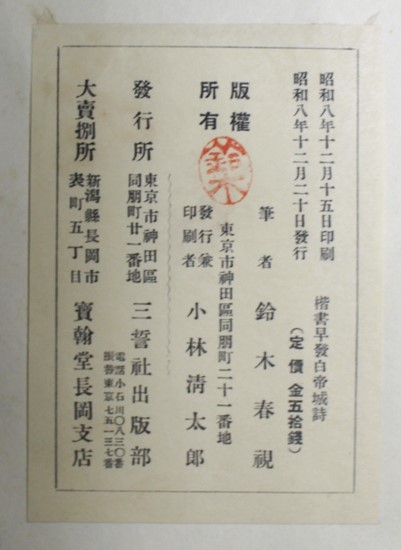 昭和八年十二月十五日印刷
昭和八年十二月二十日發行
楷書早發白帝城詩
(定價金五拾錢)
版權
所有
筆者 鈴木春視
東京市神田區同朋町二十一番地
發行兼
印刷者 小林淸太郎
發行所
東京市神田區
同朋町廿一番地
三誓社出版部
電話小石川〇八三〇番
振替東京七五一三七番
大賣捌所
新潟縣長岡市
表町五丁目
寶翰堂長岡支店